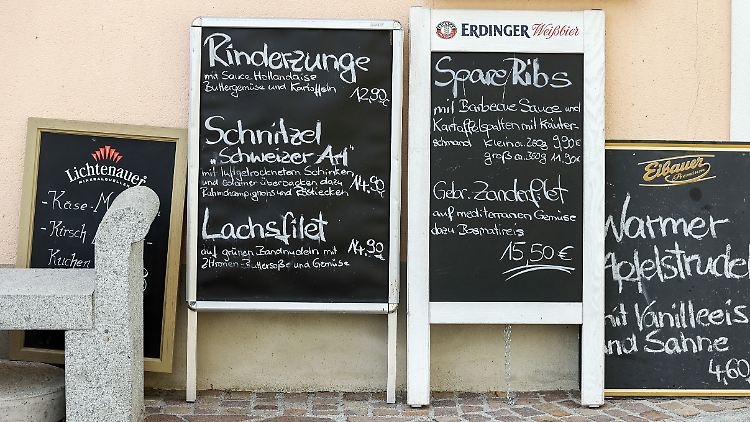 Lichtenauer
MINERALQUELLEN
- Käse-M
- Kirsch
- Kuchen
Rinderzunge
mit Sauce Hollandaise
Buttergemüse und Kartoffeln
12,90
Schnitzel
"Schweizer Art"
mit luftgetrocknetem Schinken
und Edamer überbacken dazu
Rahmchampignons und Röstiecken
14,90
Lachsfilet
auf grünen Bandnudeln mit
Zitronen-Buttersoße und Gemüse
14,90
ERDINGER Weißbier
Spare Ribs
mit Barbecue Sauce und
Kartoffelspalten mit Kräuter-
schmand kleine ca. 250g 9,90€
große ca. 350g 11,90€
Gebr. Zanderfilet
auf mediterranen Gemüse
dazu Basmatireis
15,50 €
EIBAUER
Premium
Warmer
Apfelstrudel
mit Vanilleeis
und Sahne
4,60